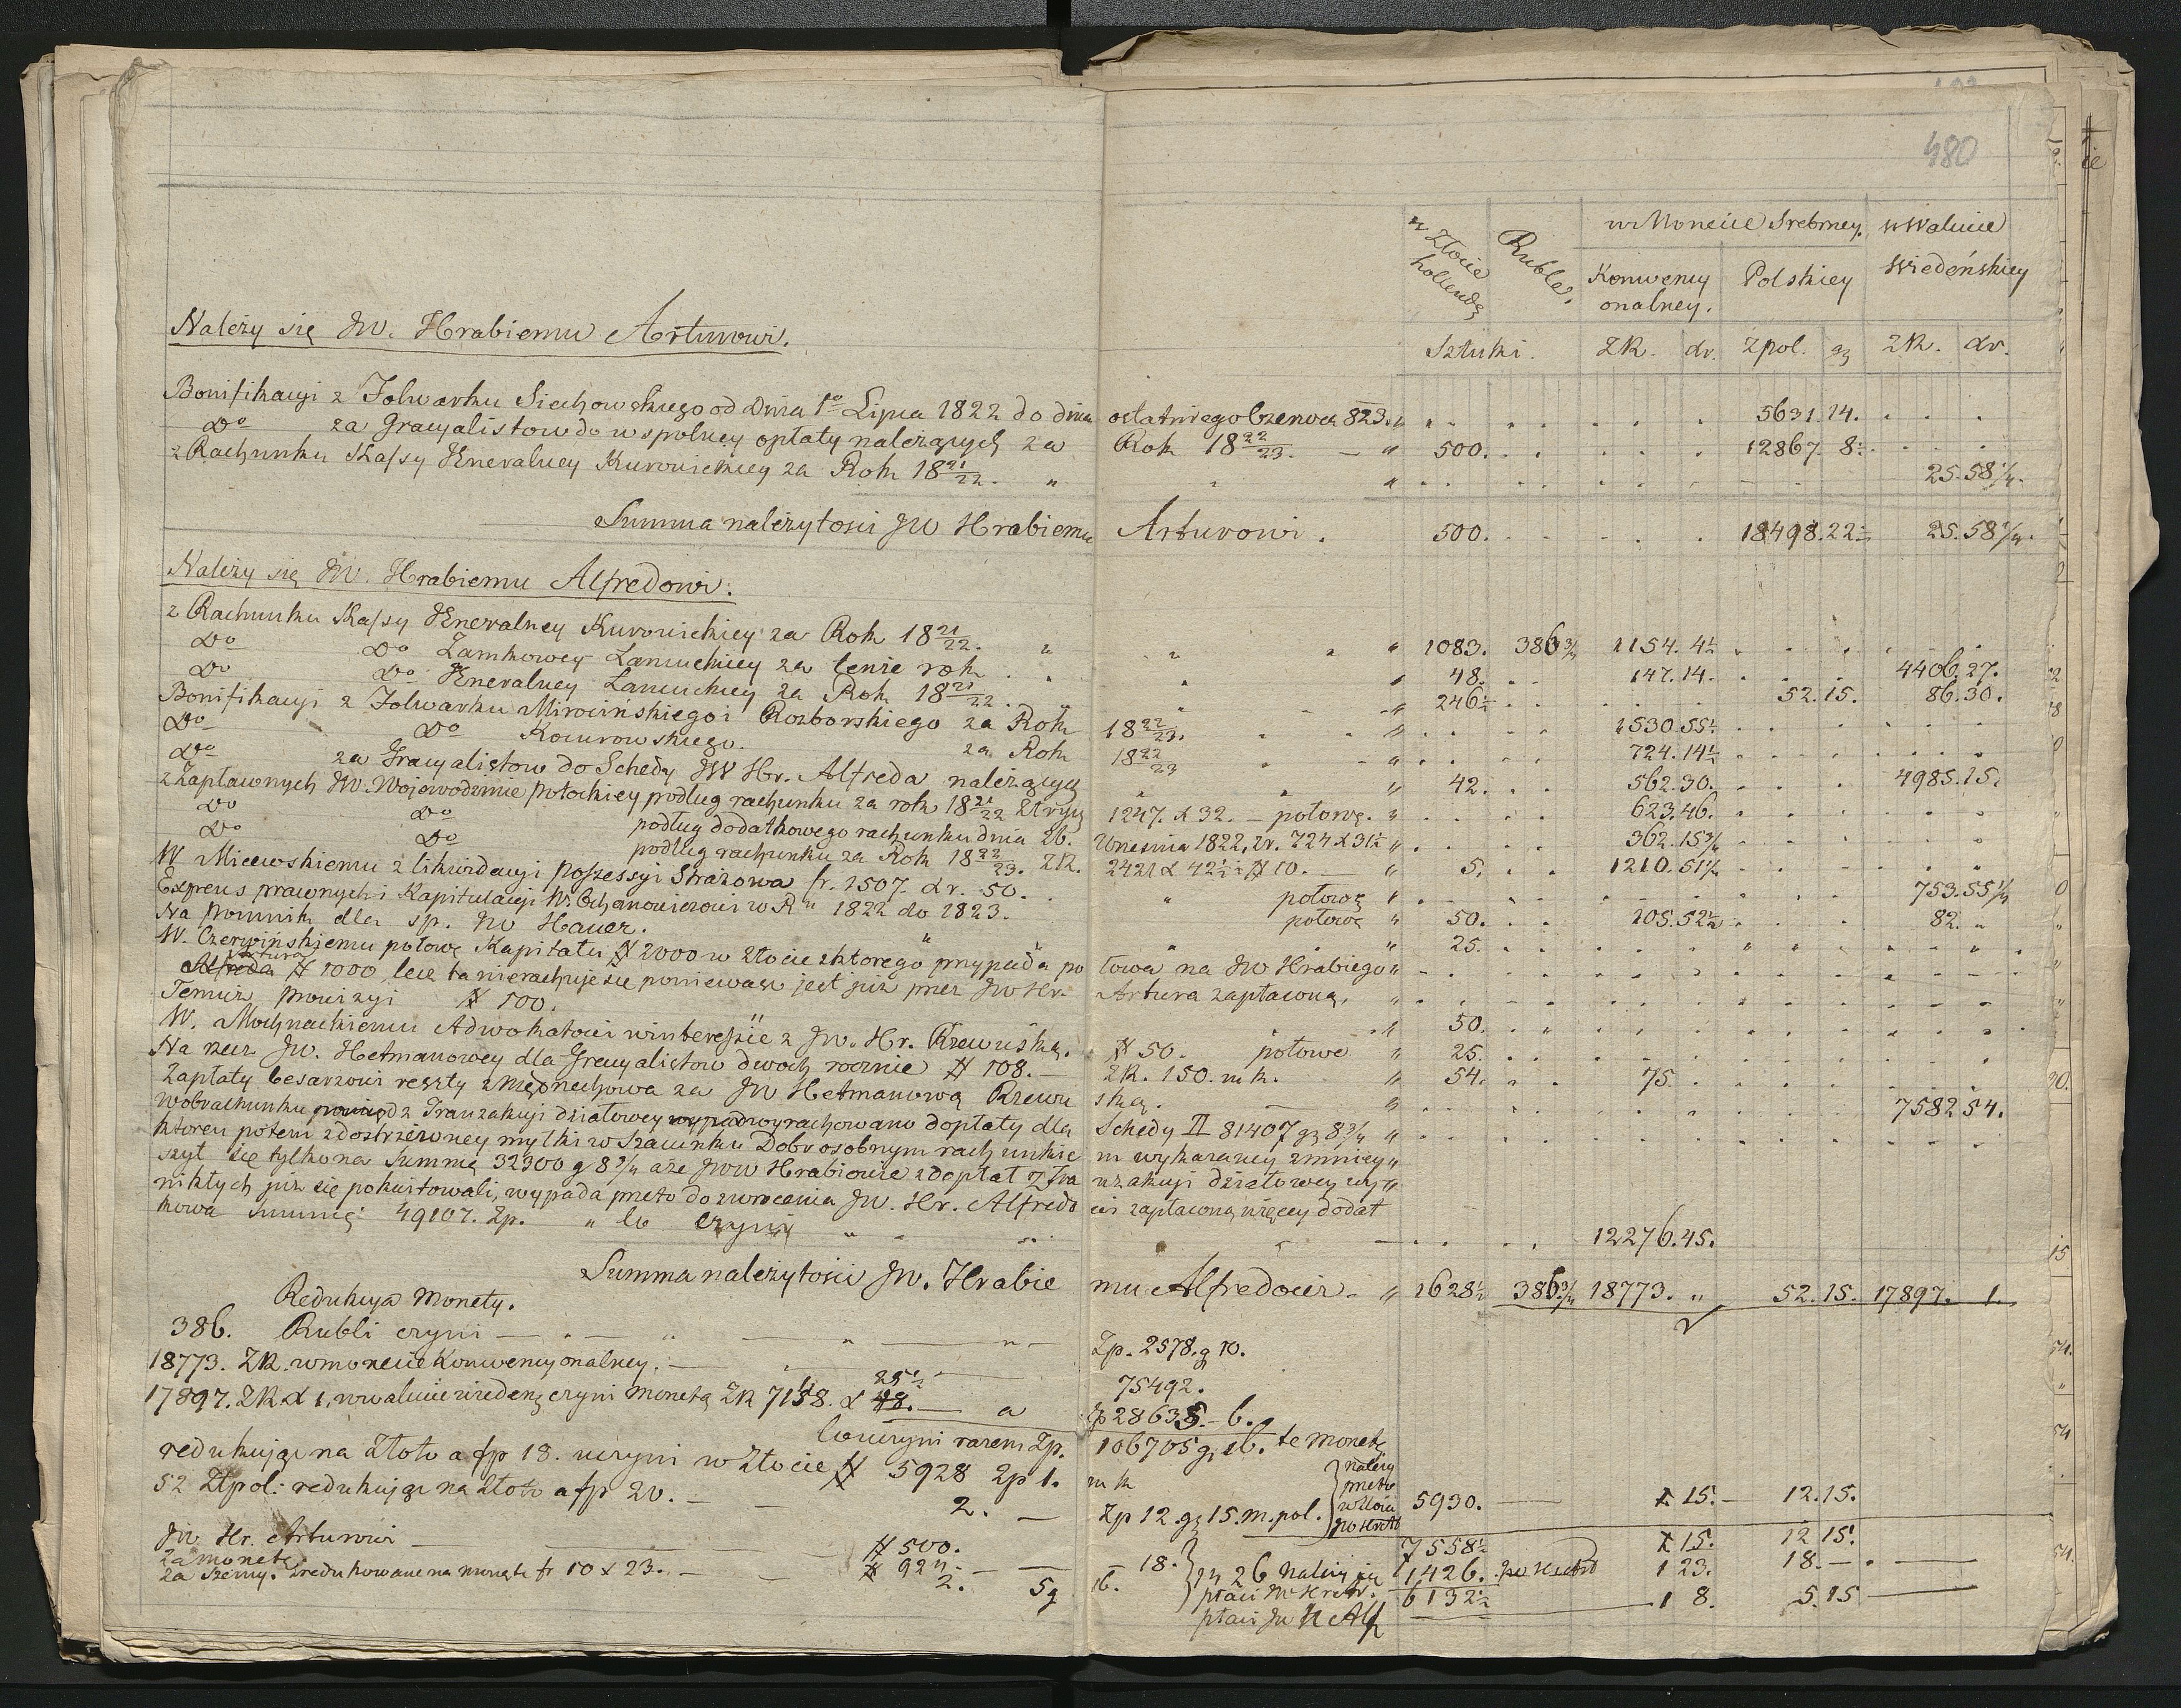 480
w Złocie hollendę
Rubble.
w Monecie Srebrney.
w Walucie
Wiedeńskiey
Konwency
onalney.
Polskiey
Sztuki. ZR. dr. Zpol. gz ZR. dr.
Należy się JW. Hrabiemu Arturowi.
Bonifikacyi z Folwarku Siechowskiego od dnia 1go Lipca 1822 do dnia ostatniego Czerwca 823. 5631.14.
Do za Gracyalistow do wspolney opłaty należących za Rok 18 22/23. — " 500. 12867. 8.
z Rachunku Kassy Jeneralney Kurowickiey za Rok 18 21/22. " 25.58 1/4.
Summa należytosci JW Hrabiemu Arturowi. 500. 18498.22 25.58 1/4.
Należy się JW. Hrabiemu Alfredowi.
z Rachunku Kassy Jeneralney Kurowickiey za Rok 18 21/22. " 1083. 386 3/4 1154. 4 1/2
Do Do Zamkowey Łancuckiey za tenże rok 48. 147.14. 4406.27.
Do Do Jeneralney Łancuckiey za Rok 18 21/22. 246 1/2 52.15. 86.30.
Bonifikacyi z Folwarku Mirocińskiego i Rozborskiego za Rok 18 22/23. 1530.55 1/2
Do Do Kocurowskiego. za Rok 18 22/23 724.14 1/2
Do za Gracyalistow do Schedy JW Hr. Alfreda należących 42. 562.30. 4985.15.
z Zapłaconych JW. Wojewodzinie Potockiey podług rachunku za rok 18 21/22 ZR 1247. x 32. — połowę. " 623.46.
Do Do podług dodatkowego rachunku dnia 26. Wresnia 1822, Zr. 724 x 31 1/2 " 362.15 3/4
Do Do podług rachunku za Rok 18 22/23. ZR. 2421 x 42 1/2 i # 10. — 5. 1210.51 1/4
W. Micewskiemu z likwidacyi possessyi Strażowa fr. 1507. dr. 50. " połowę 753.55
Expens prawnych i Kapitulacyi W. Ochanowiczowi w R" 1822 do 1823. połowę " 50. 105.52 1/2 82. "
Na pomnik dla sp. JW Hauer. " 25.
W. Czerwińskiemu połowę Kapitału # 2000 w złocie z ktorego przypada połowa na JW Hrabiego "
Artura
Alfreda # 1000 lecz ta nierachuje się poniewaz jest już przez JW Hr. Artura zapłaconą,
Temuż prowizyi # 100. 50.
W. Mochnackiemu Adwokatowi w interessie z JW. Hr. Rzewuską. # 50. połowę " 25.
Na rzecz JW. Hetmanowey dla Gracyalistow dwoch rocznie # 108. — ZR. 150. m k. " 54. 75
Zapłaty Cesarzowi reszty z Międnechowa za JW Hetmanową Rzewuską. — 7582 54.
W obrachunku powięd z Tranzakcyi działowey wyrachowano dopłaty dla Schedy II 81407 gz 8 3/4 "
ktoren potem z dostrzeżoney myłki w Szacunku Dobr osobnym rachunkiem wykazaney zmniey "
szył się tylko na Summę 32300 g 8 3/4 a że JWW Hrabiowie z dopłat z Tranzakcyi działowey wy "
nikłych już się pokwitowali, wypada przeto do zwrocenia JW. Hr. Alfredowi zapłaconą więcey dodat
kowa summę 49107. Zp. " co czyni " 12276.45.
Summa należytosci JW. Hrabiemu Alfredowi. " 1628 1/2 386 3/4 18773. " 52.15. 17897. 1.
Redukcya Monety.
386. Rubli czyni — " — " — Zp. 2578. g 10.
18773. ZR. w monecie Konwencyonalney. — 75492.
25 1/2
17897. ZR. x 1. w walucie wiedenʒ czyni monetą ZR 7158. x 48. — a Zp 28635. — 6.
Co uczyni razem Zp. 106705 g 16. te Monetę
redukując na Złoto a fp 18. uczyni w Złocie # 5928 Zp 1. m k
52 Złpol: redukując na złoto a fp 20. — — 2. — Zp 12. gz 15. m. pol. należy przeto w złocie JW Hr Alf 5930. — x 15. — 12.15.
7558 1/2 x 15. 12 15.
JW Hr. Arturowi — # 500. — 18.
za monetę # 924. — 16. 1426. 1 23. 18. —
za Szeiny. zredukowane na monetę fr 10 x 23. — 2. 5g
płaci JW Hr Art. 6132 1/2 — 1 8. 5.15
płaci JW H Alf